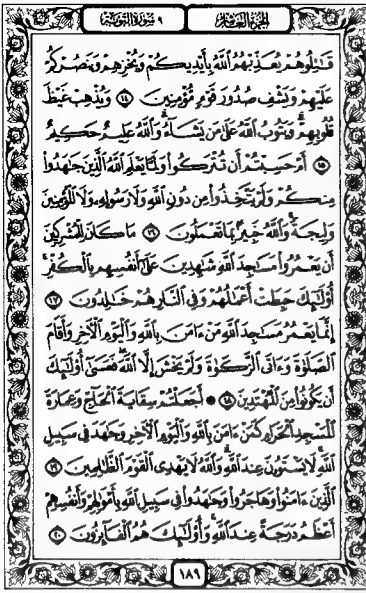 الجزء العاشر
٩ سورة التوبة
قَٰتِلُوهُمْ يُعَذِّبْهُمُ ٱللَّهُ بِأَيْدِيكُمْ وَيُخْزِهِمْ وَيَنصُرْكُمْ
عَلَيْهِمْ وَيَشْفِ صُدُورَ قَوْمٍ مُّؤْمِنِينَ ١٤ وَيُذْهِبْ غَيْظَ
قُلُوبِهِمْ وَيَتُوبُ ٱللَّهُ عَلَىٰ مَن يَشَآءُ وَٱللَّهُ عَلِيمٌ حَكِيمٌ
١٥ أَمْ حَسِبْتُمْ أَن تُتْرَكُوا۟ وَلَمَّا يَعْلَمِ ٱللَّهُ ٱلَّذِينَ جَٰهَدُوا۟
مِنكُمْ وَلَمْ يَتَّخِذُوا۟ مِن دُونِ ٱللَّهِ وَلَا رَسُولِهِۦ وَلَا ٱلْمُؤْمِنِينَ
وَلِيجَةً وَٱللَّهُ خَبِيرٌۢ بِمَا تَعْمَلُونَ ١٦ مَا كَانَ لِلْمُشْرِكِينَ
أَن يَعْمُرُوا۟ مَسَٰجِدَ ٱللَّهِ شَٰهِدِينَ عَلَىٰٓ أَنفُسِهِم بِٱلْكُفْرِ
أُو۟لَٰٓئِكَ حَبِطَتْ أَعْمَٰلُهُمْ وَفِى ٱلنَّارِ هُمْ خَٰلِدُونَ ١٧
إِنَّمَا يَعْمُرُ مَسَٰجِدَ ٱللَّهِ مَنْ ءَامَنَ بِٱللَّهِ وَٱلْيَوْمِ ٱلْءَاخِرِ وَأَقَامَ
ٱلصَّلَوٰةَ وَءَاتَى ٱلزَّكَوٰةَ وَلَمْ يَخْشَ إِلَّا ٱللَّهَ فَعَسَىٰٓ أُو۟لَٰٓئِكَ
أَن يَكُونُوا۟ مِنَ ٱلْمُهْتَدِينَ ١٨ أَجَعَلْتُمْ سِقَايَةَ ٱلْحَآجِّ وَعِمَارَةَ
ٱلْمَسْجِدِ ٱلْحَرَامِ كَمَنْ ءَامَنَ بِٱللَّهِ وَٱلْيَوْمِ ٱلْءَاخِرِ وَجَٰهَدَ فِى سَبِيلِ
ٱللَّهِ لَا يَسْتَوُۥنَ عِندَ ٱللَّهِ وَٱللَّهُ لَا يَهْدِى ٱلْقَوْمَ ٱلظَّٰلِمِينَ ١٩
ٱلَّذِينَ ءَامَنُوا۟ وَهَاجَرُوا۟ وَجَٰهَدُوا۟ فِى سَبِيلِ ٱللَّهِ بِأَمْوَٰلِهِمْ وَأَنفُسِهِمْ
أَعْظَمُ دَرَجَةً عِندَ ٱللَّهِ وَأُو۟لَٰٓئِكَ هُمُ ٱلْفَآئِزُونَ ٢٠
١٨٩